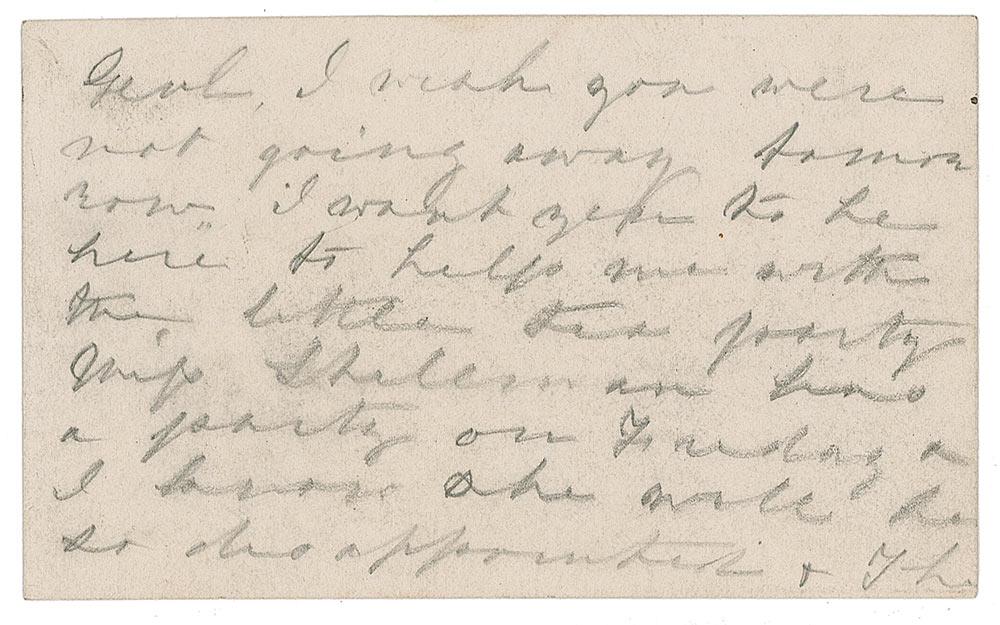 Genl, I wish you were
not going away tomor
row. I want you to be
here to help me with
the little tea party
Miss has
a party on Tuesday
I know she will be
so disappointed +